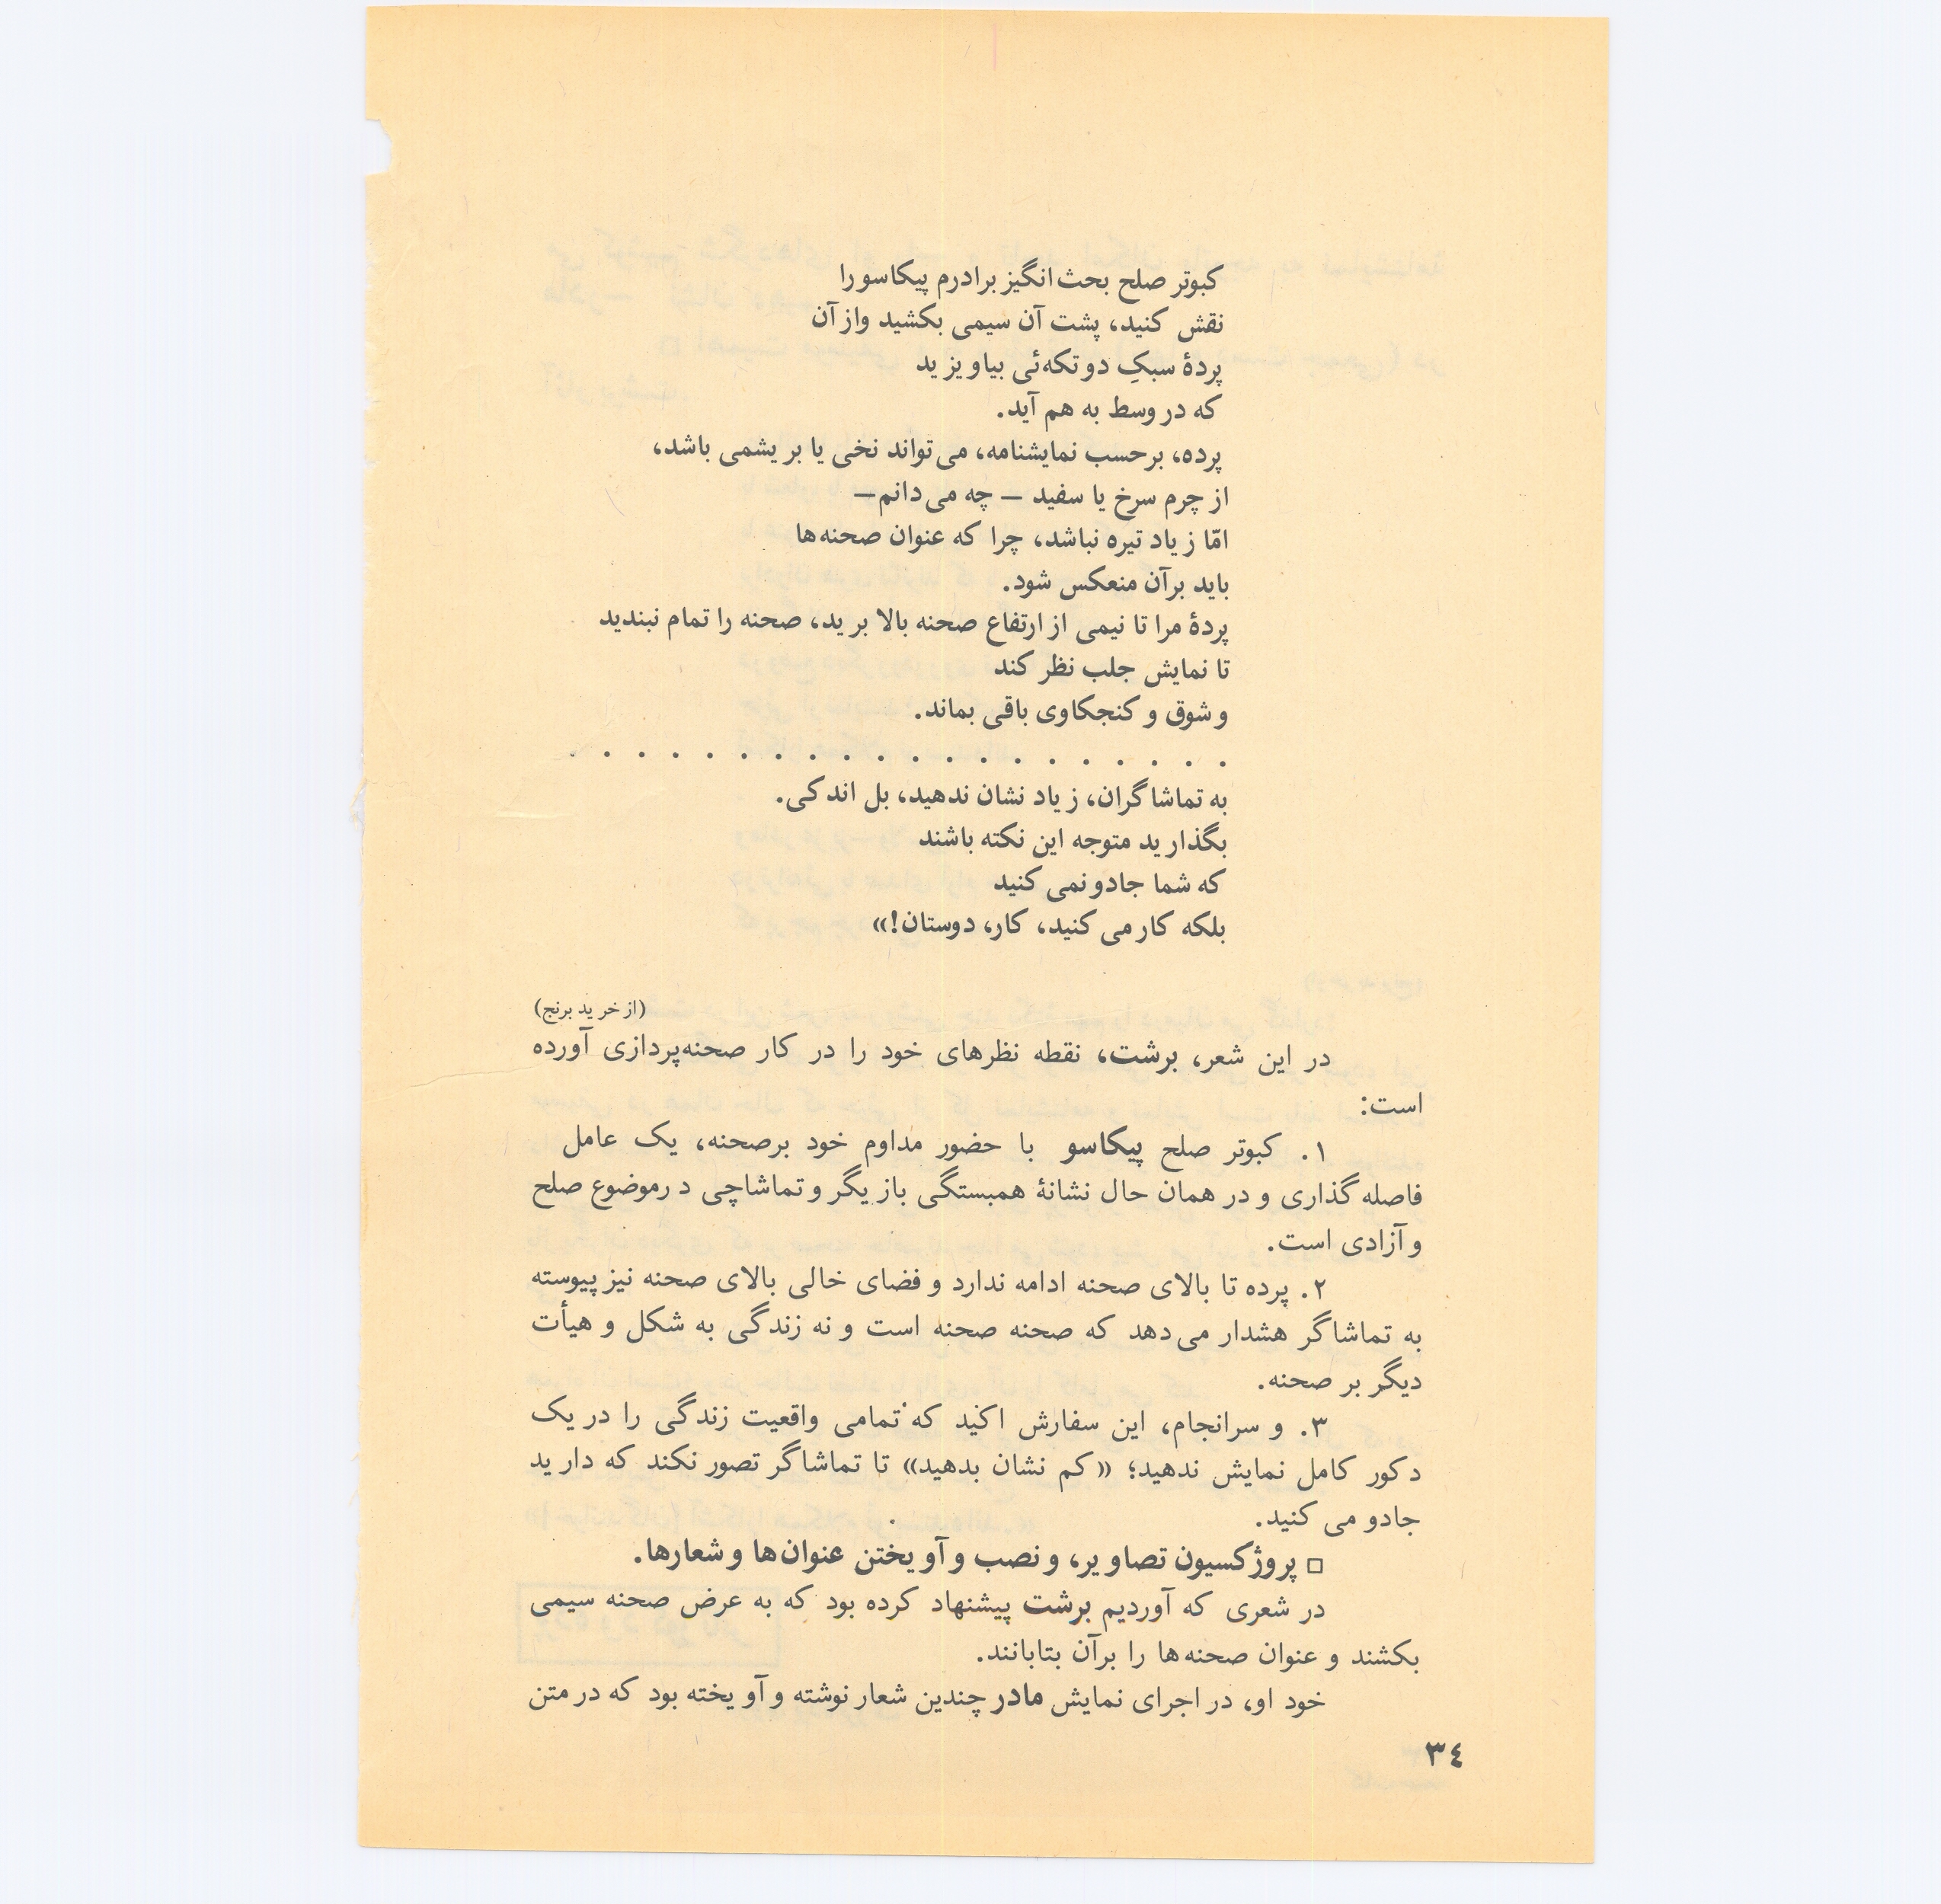 کبوتر صلح بحث‌انگیز برادرم پیکاسو را
نقش کنید، پشت آن سیمی بکشید و از آن
پردهٔ سبکِ دو تکه‌ئی بیاویزید
که در وسط به هم آید.
پرده، برحسب نمایشنامه، می‌تواند نخی یا بریشمی باشد،
از چرم سرخ یا سفید — چه می‌دانم—
امّا زیاد تیره نباشد، چرا که عنوان صحنه‌ها
باید برآن منعکس شود.
پردهٔ مرا تا نیمی از ارتفاع صحنه بالا برید، صحنه را تمام نبندید
تا نمایش جلب نظر کند
و شوق و کنجکاوی باقی بماند.
. . . . . . . . . . . . . . . . . . . .
به تماشاگران، زیاد نشان ندهید، بل اندکی.
بگذارید متوجه این نکته باشند
که شما جادو نمی‌کنید
بلکه کار می‌کنید، کار، دوستان!»
(از خرید برنج)
در این شعر، برشت، نقطه نظرهای خود را در کار صحنه‌پردازی آورده
است:
۱. کبوتر صلح پیکاسو با حضور مداوم خود برصحنه، یک عامل
فاصله‌گذاری و در همان حال نشانهٔ همبستگی بازیگر و تماشاچی درموضوع صلح
و آزادی است.
۲. پرده تا بالای صحنه ادامه ندارد و فضای خالی بالای صحنه نیز پیوسته
به تماشاگر هشدار می‌دهد که صحنه صحنه است و نه زندگی به شکل و هیأت
دیگر بر صحنه.
۳. و سرانجام، این سفارش اکید که تمامی واقعیت زندگی را در یک
دکور کامل نمایش ندهید؛ «کم نشان بدهید» تا تماشاگر تصور نکند که دارید
جادو می کنید.
□ پروژکسیون تصاویر، و نصب و آویختن عنوان‌ها و شعارها.
در شعری که آوردیم برشت پیشنهاد کرده بود که به عرض صحنه سیمی
بکشند و عنوان صحنه‌ها را برآن بتابانند.
خود او، در اجرای نمایش مادر چندین شعار نوشته و آویخته بود که در متن
۳٤